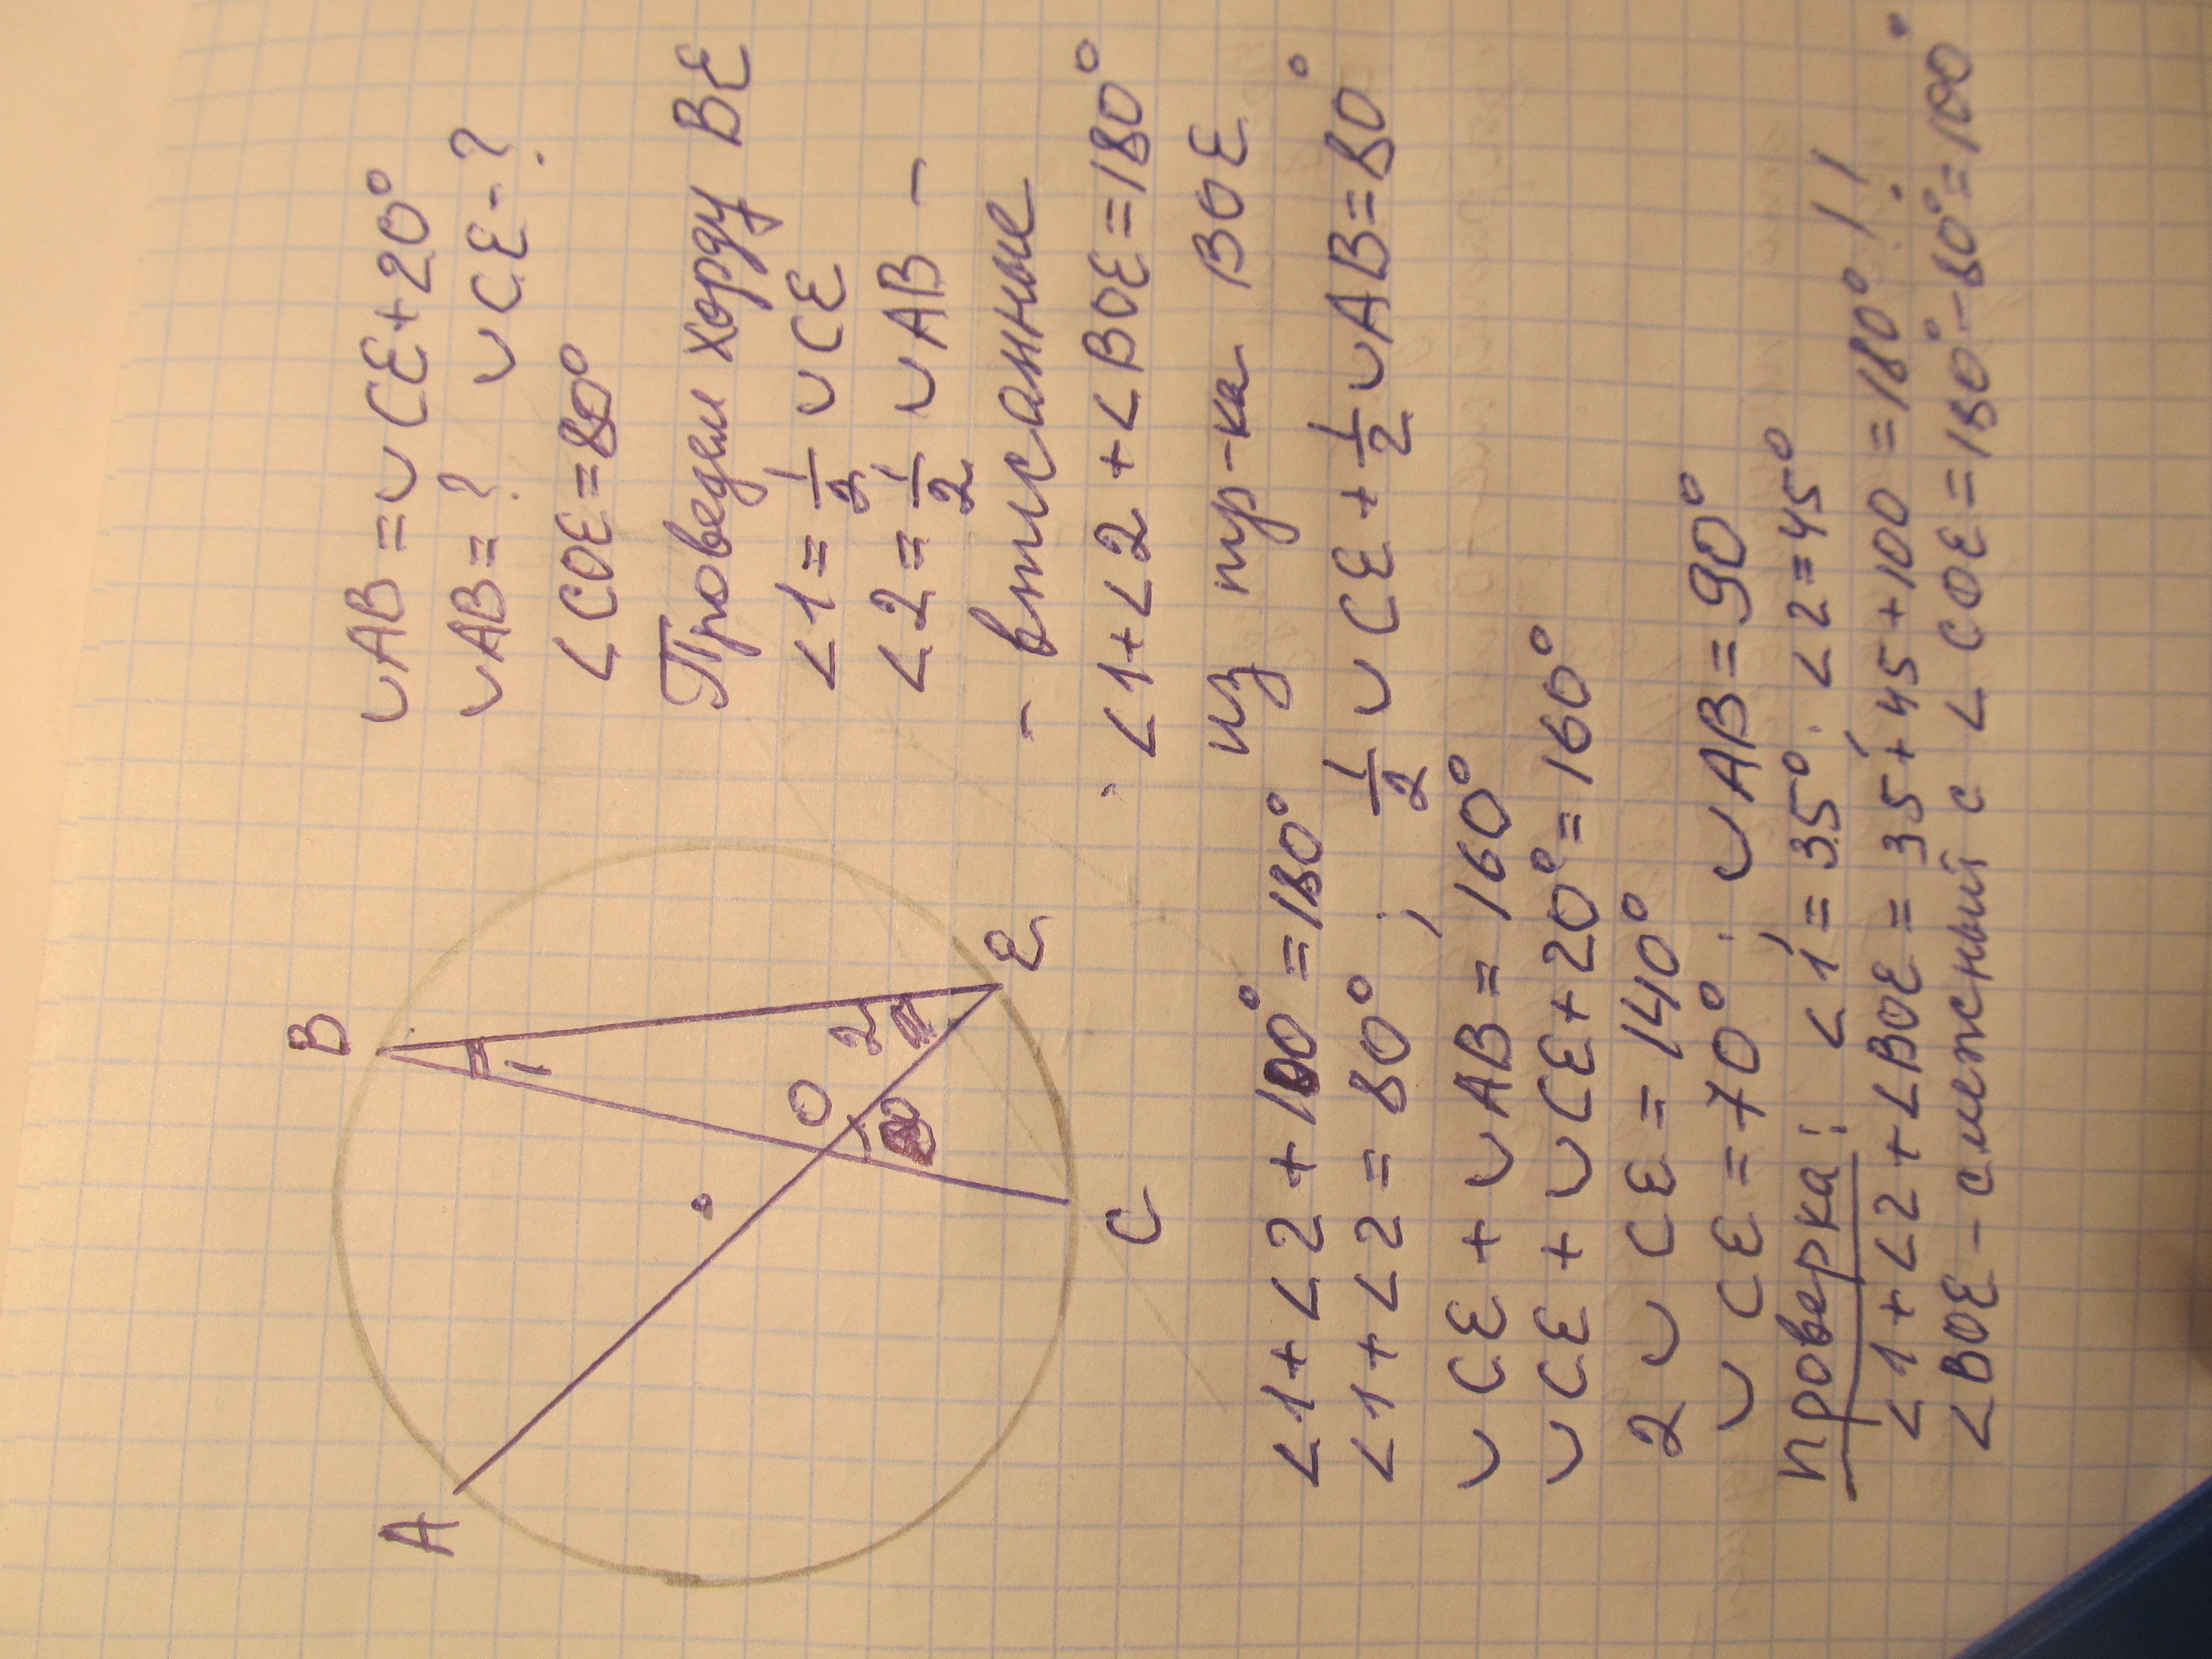 ∪AB = ∪CE + 20°
∪AB = ? ∪CE - ?
∠COE = 80°
Проведем хорду BE
∠1 = 1/2 ∪CE
∠2 = 1/2 ∪AB -
- вписанные
∠1 + ∠2 + ∠BOE = 180°
из тр-ка BOE
A
B
C
E
O
1
2
∠1 + ∠2 + 100° = 180°
∠1 + ∠2 = 80° ; 1/2 ∪CE + 1/2 ∪AB = 80°
∪CE + ∪AB = 160°
∪CE + ∪CE + 20° = 160°
2 ∪CE = 140°
∪CE = 70° ; ∪AB = 90°
проверка: ∠1 = 35° ; ∠2 = 45°
∠1 + ∠2 + ∠BOE = 35 + 45 + 100 = 180° !!
∠BOE - смежный с ∠COE = 180° - 80° = 100°